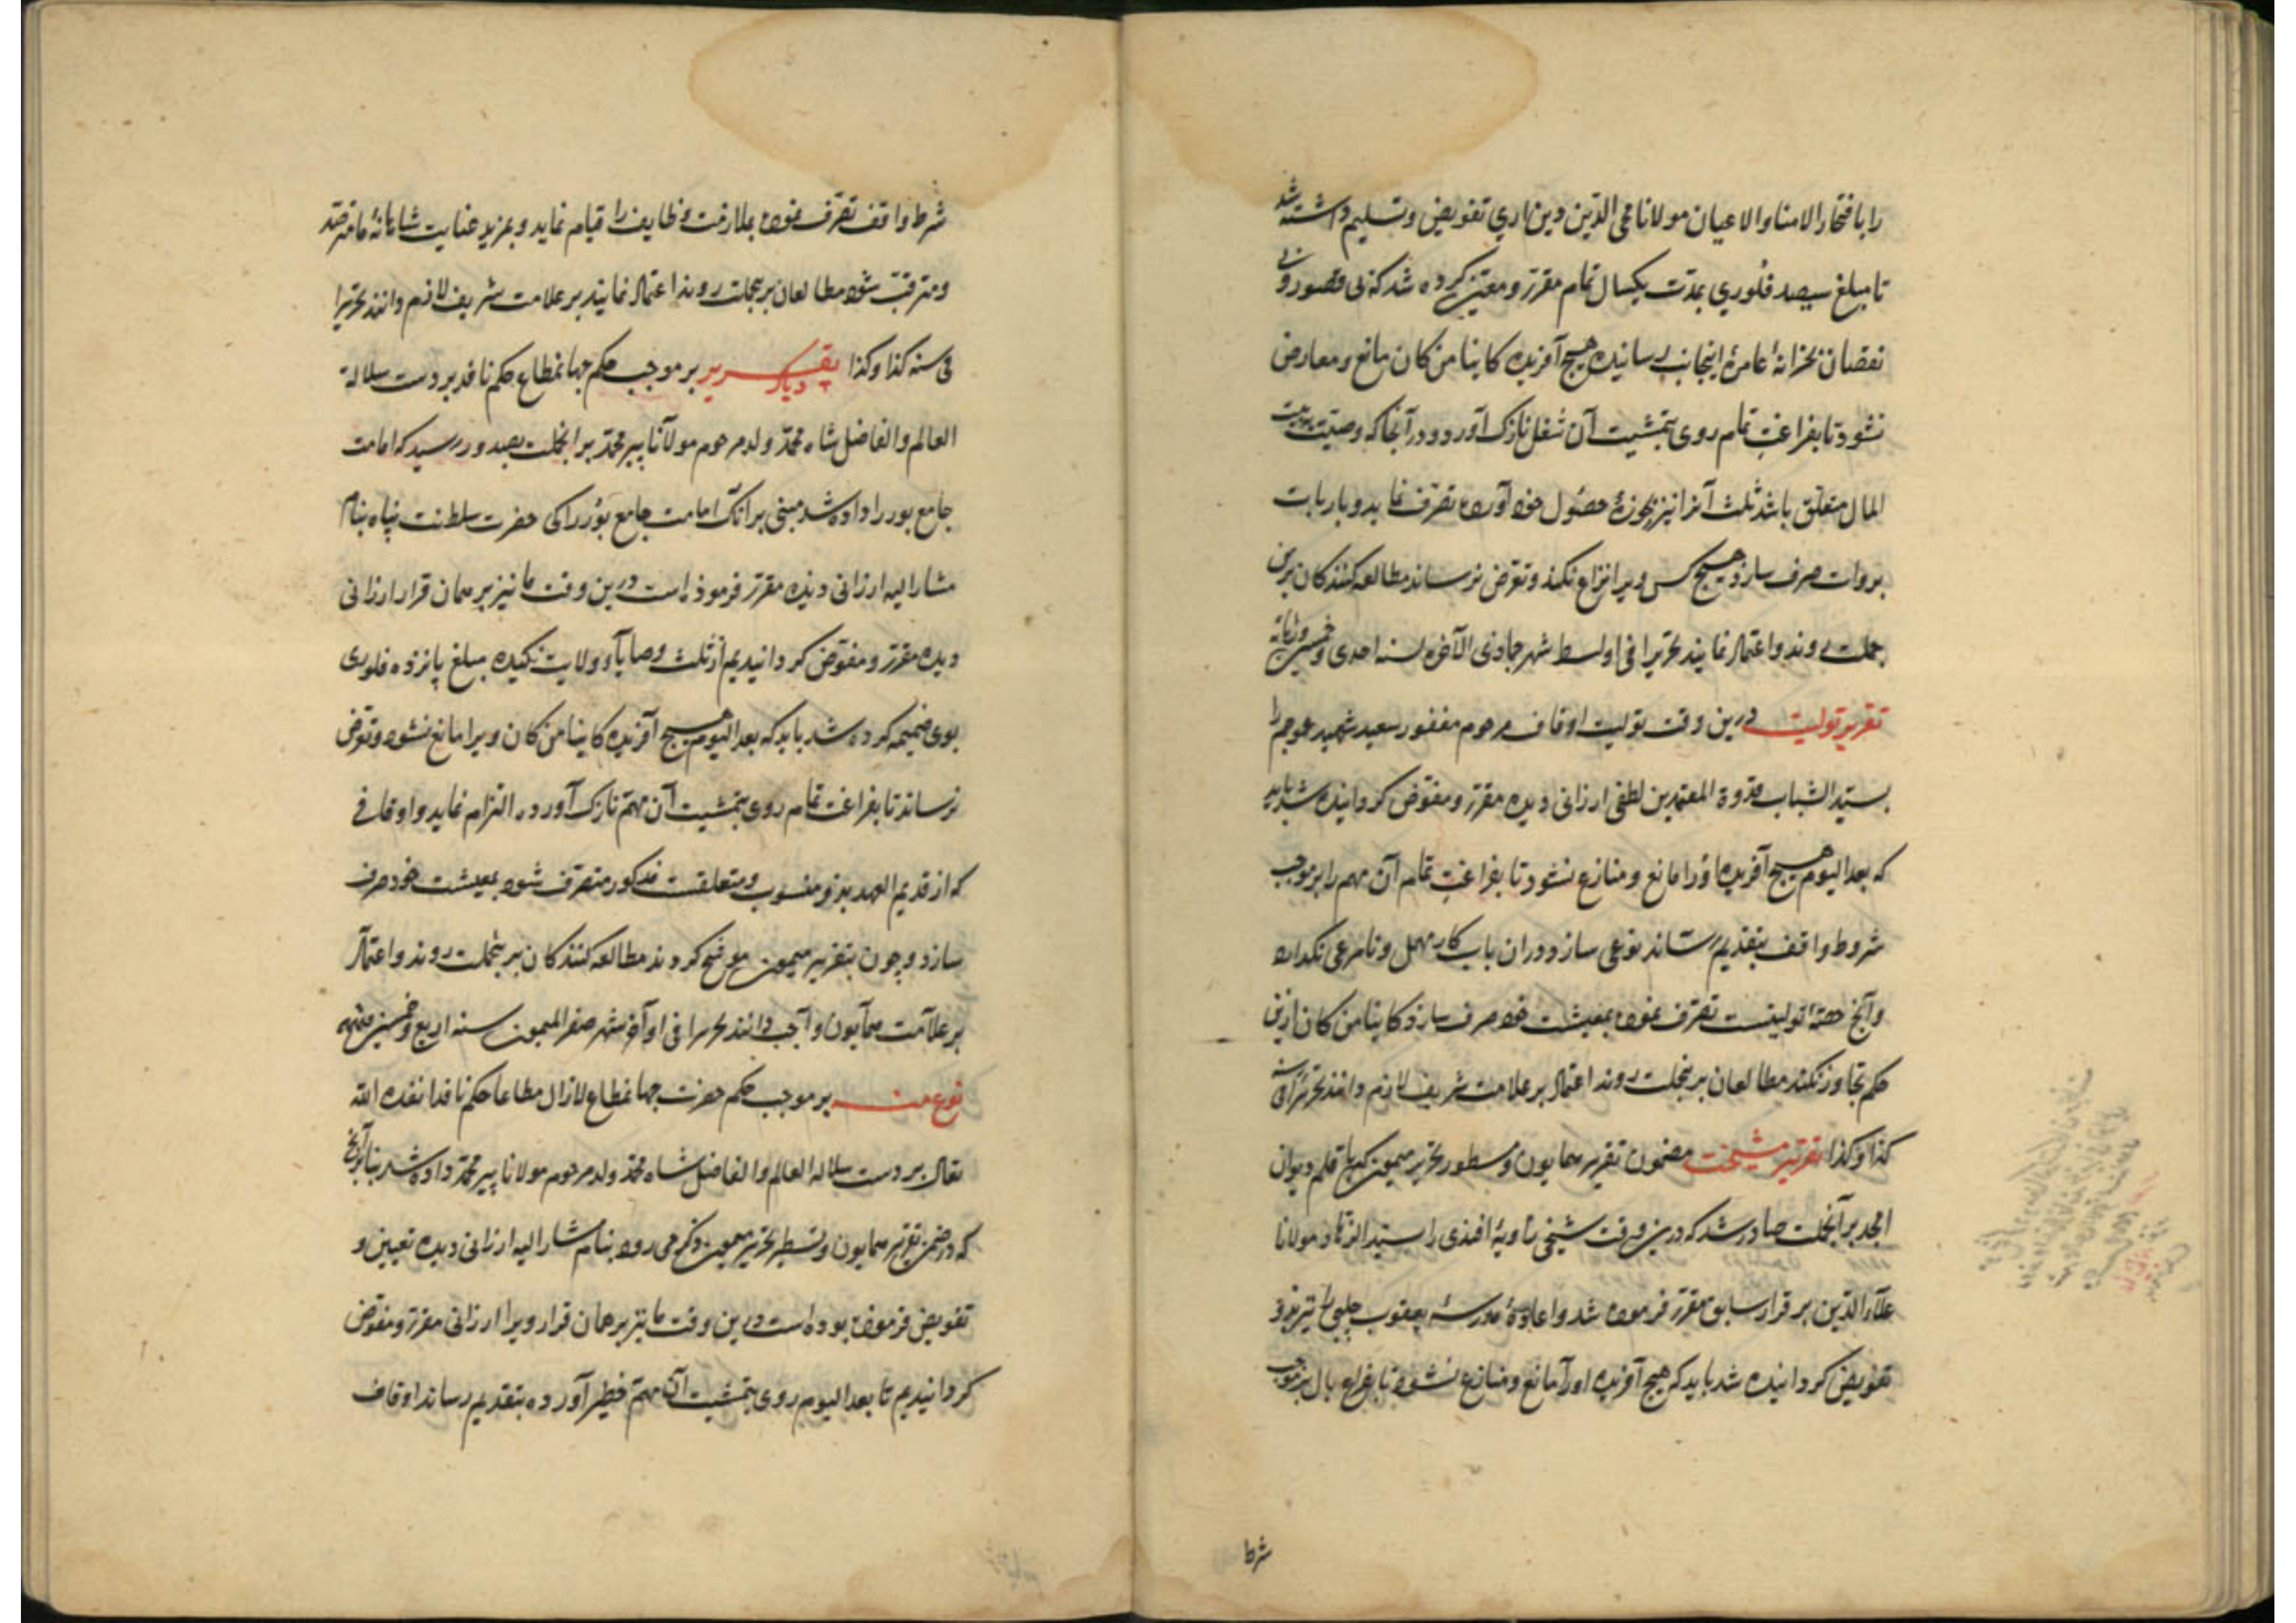 را بافتخار الامنا والاعیان مولانا محی الدین دین اری تفویض وتسلیم داشته شد
تا مبلغ سیصد فلوری بمدت یکسال تمام مقرر ومعین کرده شد که بی قصور و بی
نقصان بخزانهٔ عامرهٔ اینجانب رسانیده هیچ آفریده کاینا من کان مانع ومعارض
نشود تا بفراغت تمام روی بتمشیت آن شغل نازک آورد ودر آنجا که وصیت بیت
المال متعلق باشد ثلث آنرا نیز بحوزهٔ حصول خود آورده تصرف نماید وبارباب
بروات صرف سازد هیچ کس ویرا نزاع نکند وتعرض نرساند مطالعه کنندکان برین
جملت روند واعتماد نمایند تحریرا فی اواسط شهر جمادی الآخره لسنه احدی وخمسین وثمانمایه
تقریر تولیت درین وقت تولیت اوقاف مرحوم مغفور سعید شهید را
بسید الشباب قدوة المعتمدین لطفی ارزانی دیده مقرر ومفوض کردانیده شد باید
که بعد الیوم هیچ آفریده اورا مانع ومنازع نشود تا بفراغت تمام آن مهم را برموجب
شروط واقف بتقدیم رساند نوعی سازد در ان باب کار مهمل ونامرعی نکذارد
وآنچ حصهٔ تولیتست تصرف نموده بمعیشت خود صرف سازد کاینا من کان ازین
حکم تجاوز نکند مطالعان برینجملت روند اعتماد بر علامت شریف لازم دانند تحریرا فی سنه
کذا وکذا تقریر مشیخت مضمون تقریر همایون ومسطور تحریر میمون که با قلم دیوان
امجد بر اینجملت صادر شد که درین وقت شیخی زاویهٔ افندی را سید الزهاد مولانا
علاء الدین بر قرار سابق مقرر فرموده شد واعادهٔ مدرسهٔ یعقوب چلبی نیز بذو
تفویض کردانیده شد باید که هیچ آفریده اورا مانع ومنازع نشود تا بفراغ بال برموجب
شرط
شرط واقف تصرف نموده بملازمت وظایف را قیام نماید وبمزید عنایت شاهانهٔ ما مترصد
ومترقب شود مطالعان برینجملت روند اعتماد نمایند بر علامت شریف لازم دانند تحریرا
فی سنه کذا وکذا تقریر دیکر بر موجب حکم جهانمطاع حکم نافذ بر دست سلالة
العالم والفاضل شاه محمد ولد مرحوم مولانا پیر محمد بر اینجملت بصدور رسید که امامت
جامع بور را داده شد مبنی بر انک امامت جامع بور را کی حضرت سلطنت پناه بنام
مشار الیه ارزانی دیده مقرر فرموذه است درین وقت ما نیز بر همان قرار ارزانی
دیده مقرر ومفوض کردانیدیم از ثلث وصایاء ولایت نکیده مبلغ پانزده فلوری
بوی ضمیمه کرده شد باید که بعد الیوم هیچ آفریده کاینا من کان ویرا مانع نشود وتعرض
نرساند تا بفراغت تمام روی بتمشیت آن مهم نازک آورد والتزام نماید واوقافی
که از قدیم العهد بذو منسوب ومتعلقست مذکور متصرف شود بمعیشت خود صرف
سازد وچون بتقریر میمون موشح کردد مطالعه کنندکان برینجملت روند واعتماد
بر علامت همایون واجب دانند تحریرا فی اواخر شهر صفر المیمون سنه اربع وخمسین
نوع منه بر موجب حکم حضرت جهانمطاع لازال مطاعا حکم نافذ انفذه الله
تعالی بر دست سلالة العالم والفاضل شاه محمد ولد مرحوم مولانا پیر محمد داده شد بنا بر آنچ
که در ضمن تقریر همایون وتسطیر تحریر میمون ذکر می رود بنام مشار الیه ارزانی دیده تعیین و
تفویض فرموده بوده است درین وقت ما نیز بر همان قرار ویرا ارزانی مقرر ومفوض
کردانیدیم تا بعد الیوم روی بتمشیت آن مهم خطیر آورده بتقدیم رساند اوقاف